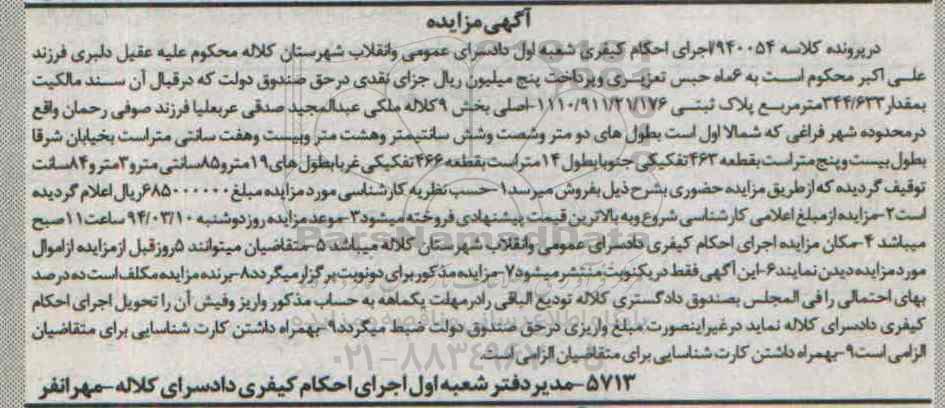 آگهی مزایده
درپرونده کلاسه ۹۴۰۰۵۴/اجرای احکام کیفری شعبه اول دادسرای عمومی وانقلاب شهرستان کلاله محکوم علیه عقیل دلبری فرزند
علی اکبر محکوم است به ۶ماه حبس تعزیری وپرداخت پنج میلیون ریال جزای نقدی درحق صندوق دولت که درقبال آن سند مالکیت
بمقدار۳۴۴/۶۳۳مترمربع پلاک ثبتی ۱۱۱۰/۹۱۱/۲۱/۱۷۶-اصلی بخش ۹کلاله ملکی عبدالمجید صدقی عربعلیا فرزند صوفی رحمان واقع
درمحدوده شهر فراغی که شمالا اول است بطول های دو متر وشصت وشش سانتیمتر وهشت متر وبیست وهفت سانتی متراست بخیابان شرقا
بطول بیست وپنج متر است بقطعه ۴۶۳تفکیکی جنوبابطول ۱۴متراست بقطعه ۴۶۶تفکیکی غربابطول های ۱۹مترو۸۵سانتی مترو۳مترو۸۴سانت
توقیف گردیده که ازطریق مزایده حضوری بشرح ذیل بفروش میرسد۱-حسب نظریه کارشناسی مورد مزایده مبلغ ۶۸۵۰۰۰۰۰۰ریال اعلام گردیده
است۲-مزایده ازمبلغ اعلامی کارشناسی شروع وبه بالاترین قیمت پیشنهادی فروخته میشود۳-موعد مزایده روزدوشنبه ۹۴/۰۳/۱۰ ساعت۱۱صبح
میباشد ۴-مکان مزایده اجرای احکام کیفری دادسرای عمومی وانقلاب شهرستان کلاله میباشد ۵-متقاضیان میتوانند ۵روزقبل ازمزایده ازاموال
مورد مزایده دیدن نمایند۶-این آگهی فقط دریکنوبت منتشرمیشود۷-مزایده مذکور برای دونوبت برگزار میگردد۸-برنده مزایده مکلف است ده درصد
بهای احتمالی را فی المجلس بصندوق دادگستری کلاله تودیع الباقی رادرمهلت یکماهه به حساب مذکور واریز وفیش آن را تحویل اجرای احکام
کیفری دادسرای کلاله نماید درغیراینصورت مبلغ واریزی درحق صندوق دولت ضبط میگردد۹-بهمراه داشتن کارت شناسایی برای متقاضیان
الزامی است۹-بهمراه داشتن کارت شناسایی برای متقاضیان الزامی است.
۵۷۱۳-مدیردفتر شعبه اول اجرای احکام کیفری دادسرای کلاله-مهرانفر
ParsNamadData
پایگاه اطلاع رسانی مناقصه و مزایده